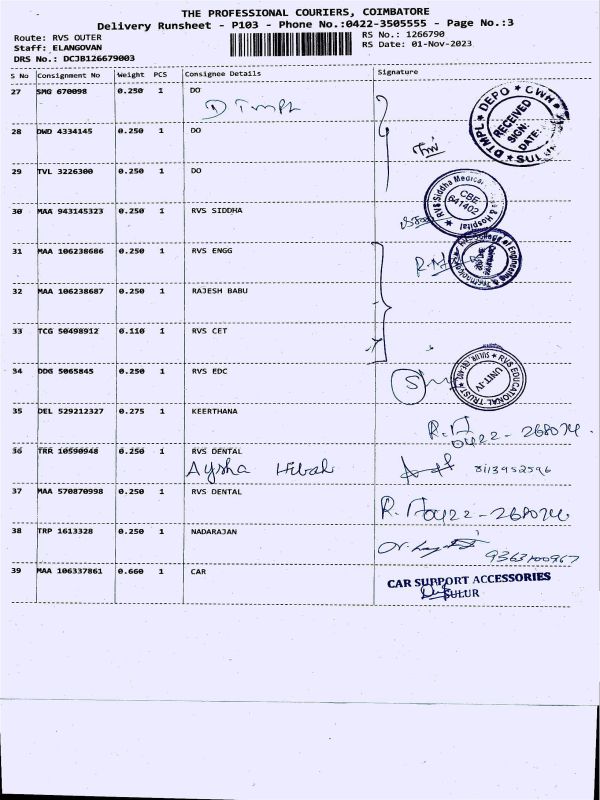 THE PROFESSIONAL COURIERS, COIMBATORE
Delivery Runsheet - P103 - Phone No.:0422-3505555 - Page No.:3
Route: RVS OUTER
RS No.: 1266790
Staff: ELANGOVAN
RS Date: 01-Nov-2023
DRS No.: DCJB126679003
S No Consignment No Weight PCS Consignee Details Signature
27 SMG 670098 0.250 1 DO
DTMPL
DTMPL DEPO * CWH
RECEIVED
SIGN:
DATE:
28 DWD 4334145 0.250 1 DO
29 TVL 3226300 0.250 1 DO
RVS Siddha Medical & Hospital
CBE
641402
30 MAA 943145323 0.250 1 RVS SIDDHA
31 MAA 106238686 0.250 1 RVS ENGG
College of Engineering &
32 MAA 106238687 0.250 1 RAJESH BABU
33 TCG 50498912 0.110 1 RVS CET
34 DDG 5065845 0.250 1 RVS EDC
RVS EDUCATIONAL TRUST
UNIT-IV
35 DEL 529212327 0.275 1 KEERTHANA
0422-268074.
36 TRR 10590948 0.250 1 RVS DENTAL
Aysha Hibah 8113952596
37 MAA 570870998 0.250 1 RVS DENTAL
0422-268074.
38 TRP 1613328 0.250 1 NADARAJAN
9363100967
39 MAA 106337861 0.660 1 CAR
CAR SUPPORT ACCESSORIES
SULUR